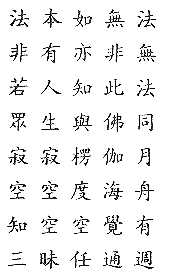 法本如無法
非有亦非無
若人知此法
眾生與佛同
寂寂楞伽月
空空度海舟
知空空覺有
三昧任通週